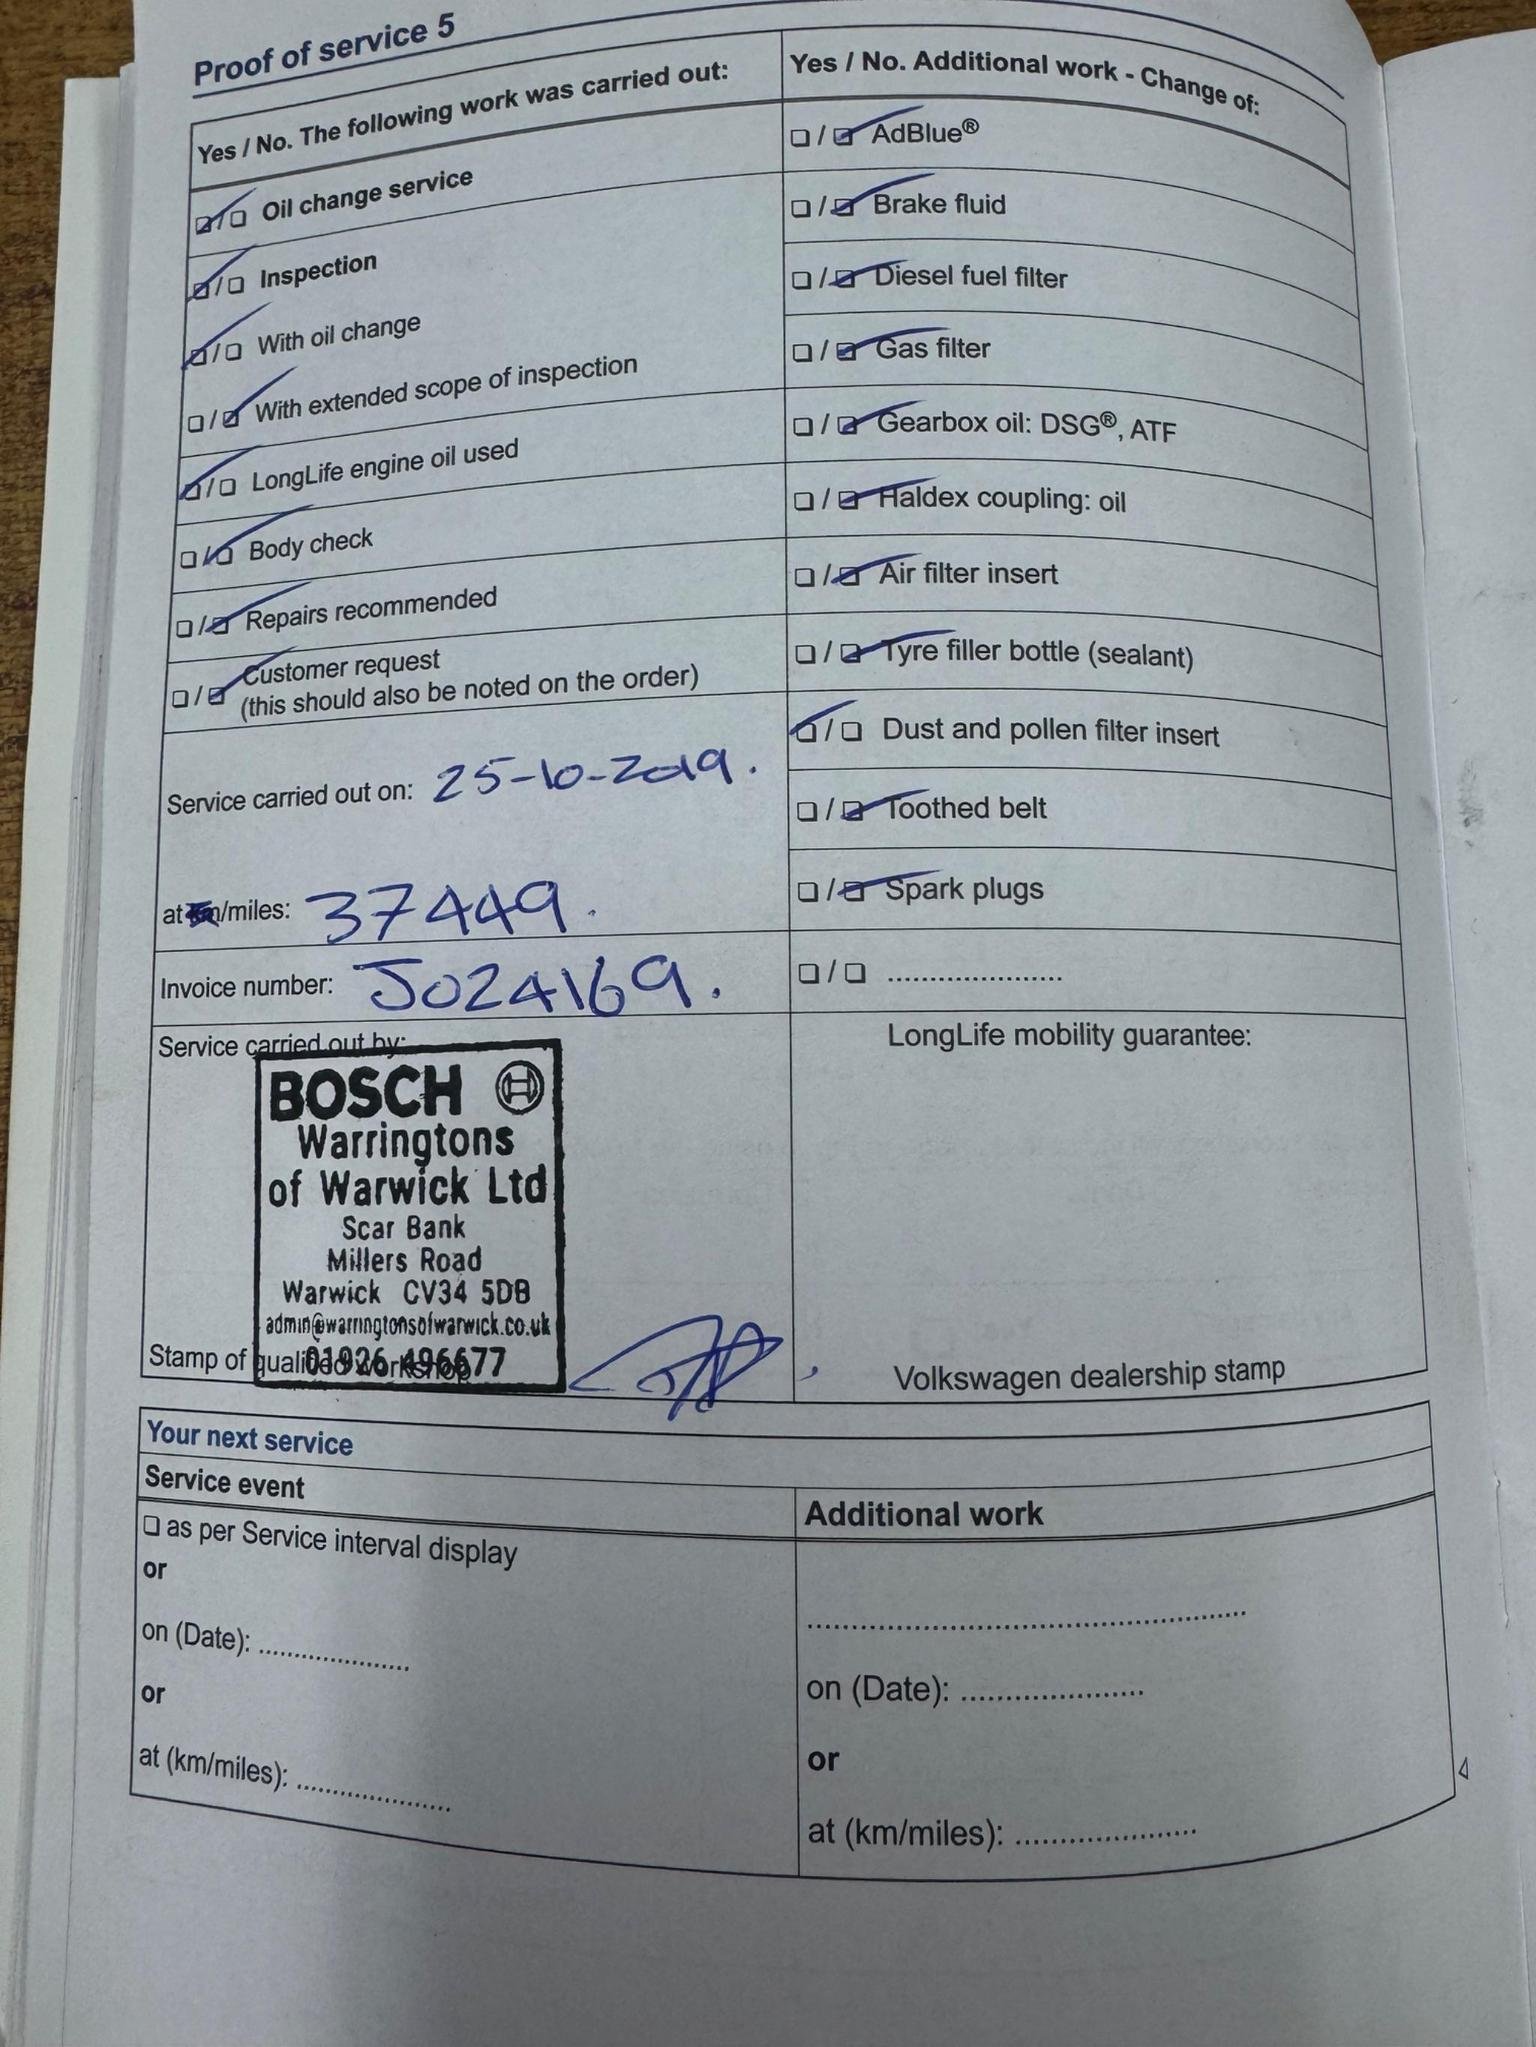 Proof of service 5
Yes / No. The following work was carried out:
☑ / ☐ Oil change service
☑ / ☐ Inspection
☑ / ☐ With oil change
☐ / ☑ With extended scope of inspection
☑ / ☐ LongLife engine oil used
☐ / ☑ Body check
☐ / ☑ Repairs recommended
☐ / ☑ Customer request
(this should also be noted on the order)
Service carried out on: 25-10-2019.
at km/miles: 37449.
Invoice number: J024169.
Service carried out by:
BOSCH
Warringtons
of Warwick Ltd
Scar Bank
Millers Road
Warwick CV34 5DB
admin@warringtonsofwarwick.co.uk
01926 496677
Stamp of qualified workshop
Yes / No. Additional work - Change of:
☐ / ☑ AdBlue®
☐ / ☑ Brake fluid
☐ / ☑ Diesel fuel filter
☐ / ☑ Gas filter
☐ / ☑ Gearbox oil: DSG®, ATF
☐ / ☑ Haldex coupling: oil
☐ / ☑ Air filter insert
☐ / ☑ Tyre filler bottle (sealant)
☑ / ☐ Dust and pollen filter insert
☐ / ☑ Toothed belt
☐ / ☑ Spark plugs
☐ / ☐ .....................
LongLife mobility guarantee:
Volkswagen dealership stamp
Your next service
Service event
☐ as per Service interval display
or
on (Date): .....................
or
at (km/miles): .....................
Additional work
..................................................
on (Date): .....................
or
at (km/miles): .....................